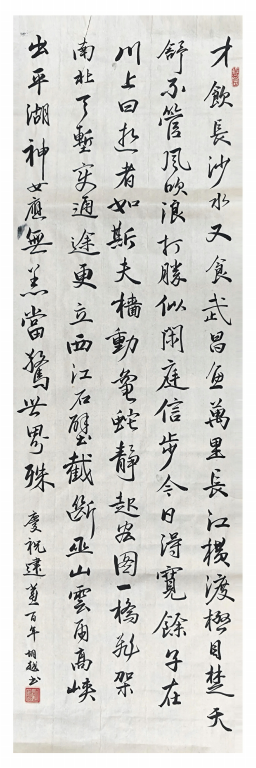 才飲長沙水又食武昌魚萬里長江橫渡極目楚天
舒不管風吹浪打勝似閑庭信步今日得寬餘子在
川上曰逝者如斯夫檣動龜蛇靜起宏圖一橋飛架
南北天塹變通途更立西江石壁截斷巫山雲雨高峽
出平湖神女應無恙當驚世界殊
慶祝建黨百年 胡越书